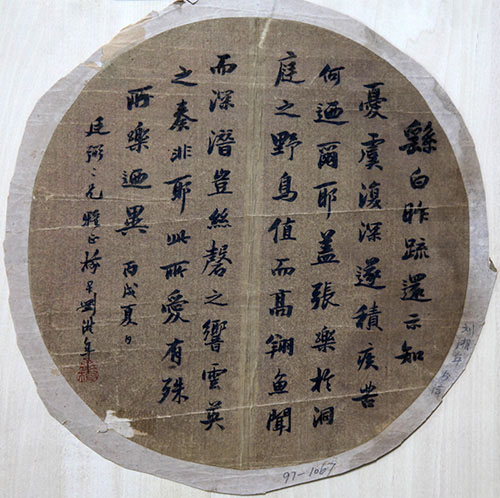 繇白昨疏還示知
憂虞復深遂積疾苦
何迺爾耶蓋張樂於洞
庭之野鳥值而高翔魚聞
而深潛豈絲磬之響雲英
之奏非耶此所愛有殊
所樂迺異 丙戌夏日
廷弼二兄雅正 劉淮年
刘淮年
97-1067